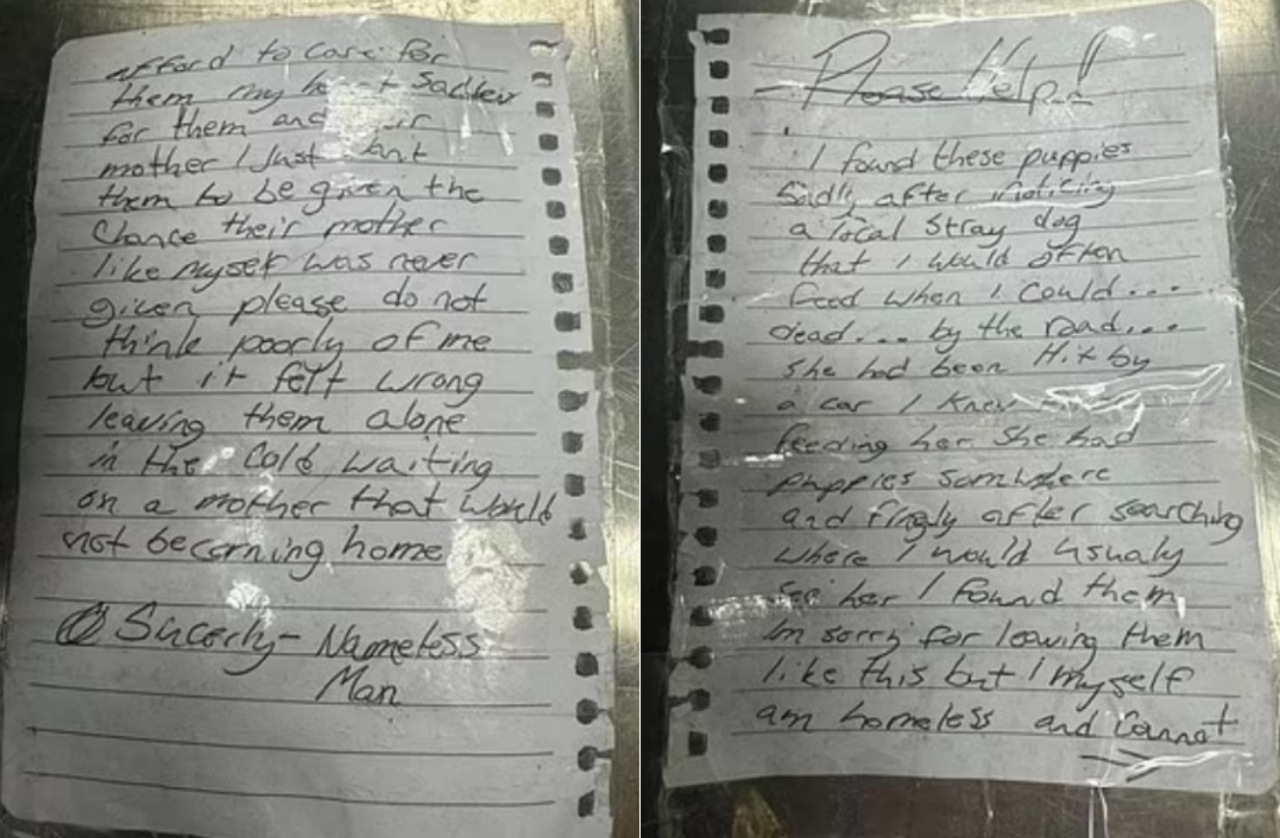 Please Help!
I found these puppies
Sadly after noticing
a local Stray dog
that I would often
feed when I could...
dead... by the road...
she had been Hit by
a car I knew
feeding her She had
puppies somwhere
and finaly after searching
where I would usualy
see her I found them
Im sorry for leaving them
like this but I myself
am homeless and cannot
afford to care for
them my Saddens
for them and
mother I Just
them to be given the
Chance their mother
like myself was never
given please do not
think poorly of me
but it felt wrong
leaving them alone
in the Cold waiting
on a mother that would
not be coming home
Sincerly - Nameless
Man